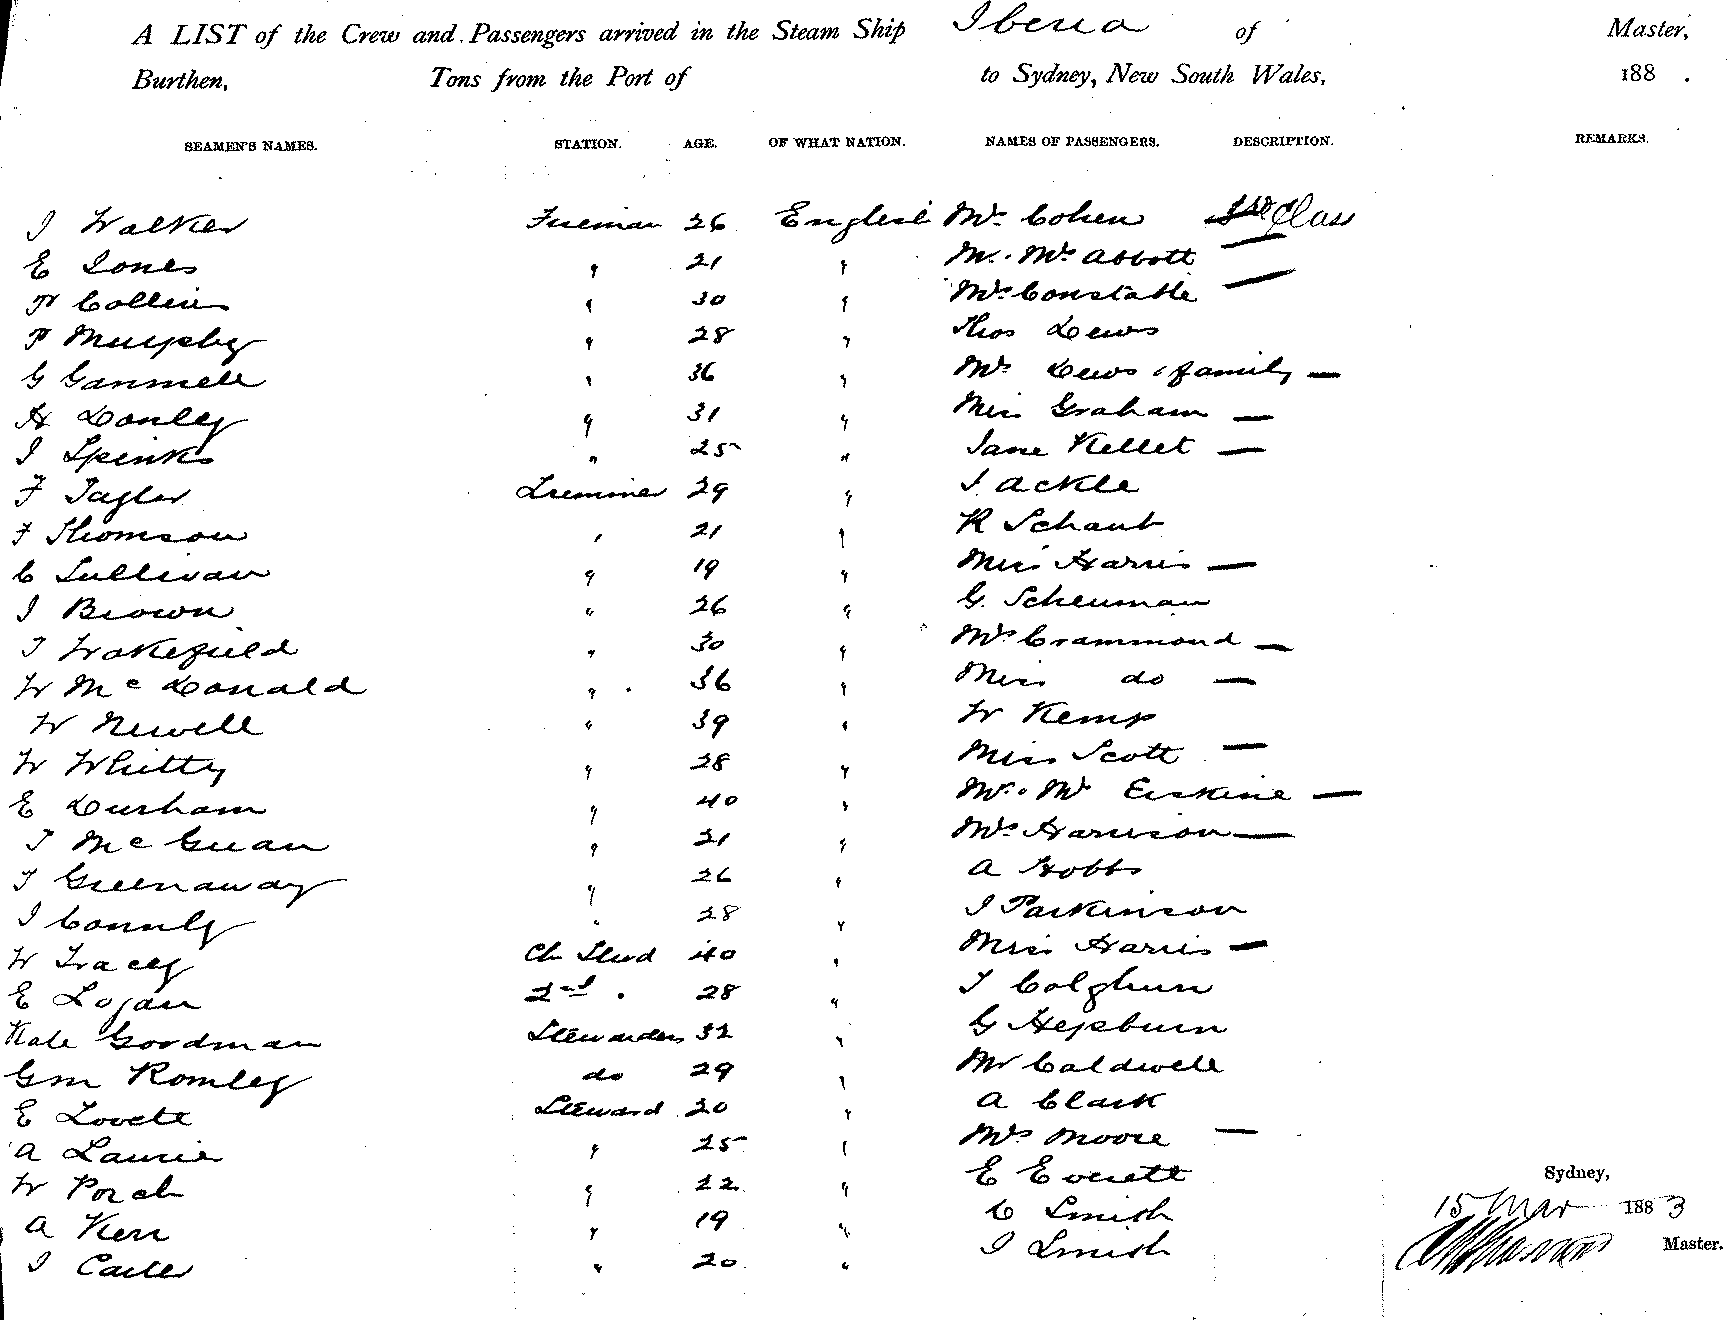 A LIST of the Crew and Passengers arrived in the Steam Ship Iberia of Master,
Burthen, Tons from the Port of to Sydney, New South Wales, 188 .
SEAMEN'S NAMES. STATION. AGE. OF WHAT NATION. NAMES OF PASSENGERS. DESCRIPTION. REMARKS.
J Walker Fireman 26 English Mrs Cohen Class
E Jones " 21 " Mr. Mrs Abbott —
P Collins " 30 " Mrs Constable —
P Murphy " 28 " Thos Dews
G Gammell " 36 " Mrs Dews & family —
H Donley " 31 " Miss Graham —
J Spinks " 25 " Jane Kellet —
F Taylor Trimmer 29 " J. Ackle
F Thomson " 21 " R Schaub
C Sullivan " 19 " Miss Harris —
J Brown " 26 " G. Scheuman
T Wakefield " 30 " Mrs Crammond —
W Mc Donald " 36 " Miss do —
W Newell " 39 " W Kemp
W Whitty " 28 " Miss Scott —
E Durham " 40 " Mr. Mrs Erskine —
T Mc Guan " 21 " Mrs Harrison —
T Greenaway " 26 " A Hobbs
J Connly " 28 " J Parkinson
W Tracey Ch Stwd 40 " Miss Harris —
E Logan 2nd " 28 " T Colqhun
Kate Goodman Stewardess 32 " G Hepburn
Gm Romley do 29 " Mr Caldwell
E Lovett Steward 20 " A Clark
A Laurie " 25 " Mrs Moore —
W Porch " 22 " E Everett
A Kerr " 19 " C Smith
J Carter " 20 " J Smith
Sydney,
15 Mar 1883
Master.